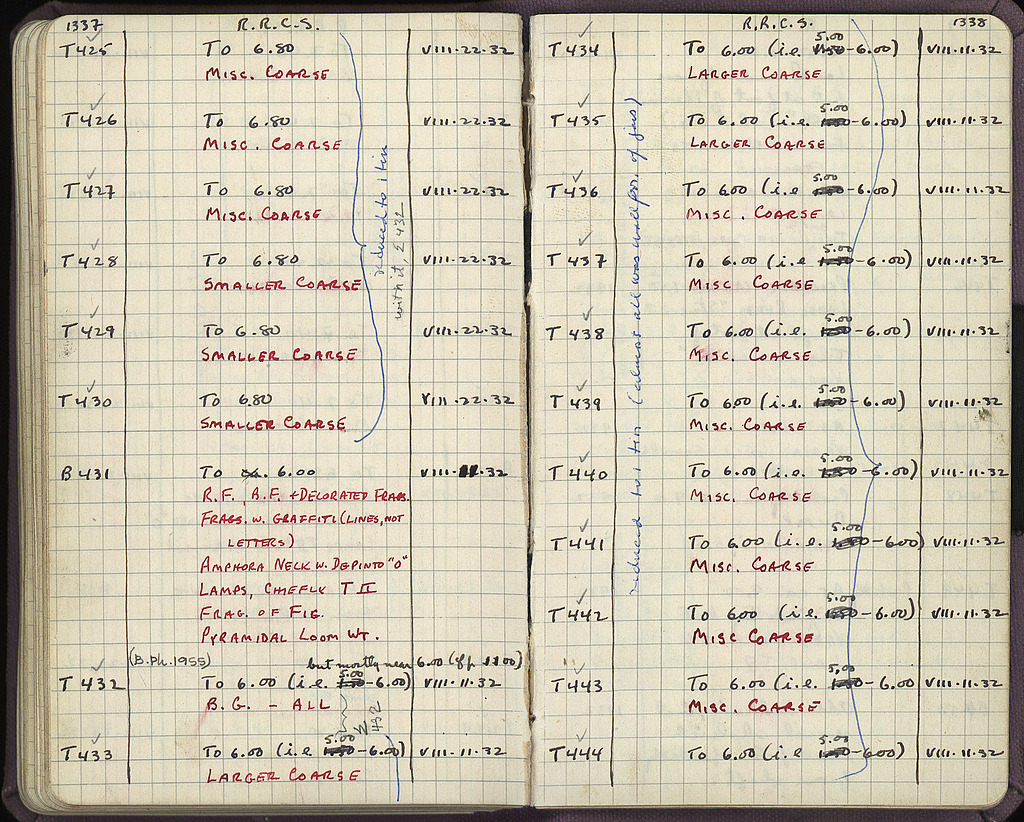 1337 R.R.C.S.
T425 To 6.80 VIII.22.32
Misc. Coarse
T426 To 6.80 VIII.22.32
Misc. Coarse
T427 To 6.80 VIII.22.32
Misc. Coarse
T428 To 6.80 VIII.22.32
Smaller Coarse
T429 To 6.80 VIII.22.32
Smaller Coarse
T430 To 6.80 VIII.22.32
Smaller Coarse
reduced to 1 tin
with it, Σ 432
B431 To 6.00 VIII.11.32
R.F., B.F. + Decorated Frags.
Frags. w. Graffiti (Lines, not
Letters)
Amphora Neck w. Depinto "O"
Lamps, Chiefly T II
Frag. of Fig.
Pyramidal Loom Wt.
(B.Ph. 1955) but mostly near 6.00 (cf p. 1100)
T432 To 6.00 (i.e. 5.00-6.00) VIII.11.32
B.G. - All
Σ 432
T433 To 6.00 (i.e 5.00-6.00) VIII.11.32
Larger Coarse
R.R.C.S. 1338
T434 To 6.00 (i.e 5.00-6.00) VIII.11.32
Larger Coarse
T435 To 6.00 (i.e. 5.00-6.00) VIII.11.32
Larger Coarse
T436 To 6.00 (i.e 5.00-6.00) VIII.11.32
Misc. Coarse
T437 To 6.00 (i.e 5.00-6.00) VIII.11.32
Misc Coarse
T438 To 6.00 (i.e. 5.00-6.00) VIII.11.32
Misc. Coarse
T439 To 6.00 (i.e. 5.00-6.00) VIII.11.32
Misc. Coarse
T440 To 6.00 (i.e. 5.00-6.00) VIII.11.32
Misc. Coarse
T441 To 6.00 (i.e. 5.00-6.00) VIII.11.32
Misc. Coarse
T442 To 6.00 (i.e. 5.00-6.00) VIII.11.32
Misc Coarse
T443 To 6.00 (i.e. 5.00-6.00 VIII.11.32
Misc. Coarse
T444 To 6.00 (i.e 5.00-6.00) VIII.11.32
reduced to 1 tin (almost all was of jars)